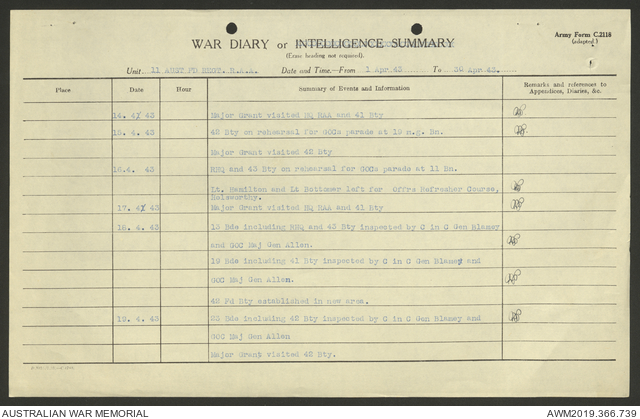 Army Form C.2118
(adapted.)
WAR DIARY or INTELLIGENCE SUMMARY
(Erase heading not required).
Unit. 11 AUST FD REGT. R.A.A. Date and Time.—From 1 Apr.43 To 30 Apr.43.
Place Date Hour Summary of Events and Information Remarks and references to
Appendices, Diaries, &c.
14. 4. 43 Major Grant visited HQ RAA and 41 Bty
15. 4. 43 42 Bty on rehearsal for GOCs parade at 19 m.g. Bn.
Major Grant visited 42 Bty
16.4. 43 RHQ and 43 Bty on rehearsal for GOCs parade at 11 Bn.
Lt. Hamilton and Lt Bottomer left for Offrs Refresher Course,
Holsworthy.
17. 4. 43 Major Grant visited HQ RAA and 41 Bty
18. 4. 43 13 Bde including RHQ and 43 Bty inspected by C in C Gen Blamey
and GOC Maj Gen Allen.
19 Bde including 41 Bty inspected by C in C Gen Blamey and
GOC Maj Gen Allen.
42 Fd Bty established in new area.
19. 4. 43 23 Bde including 42 Bty inspected by C in C Gen Blamey and
GOC Maj Gen Allen
Major Grant visited 42 Bty.
AUSTRALIAN WAR MEMORIAL AWM2019.366.739